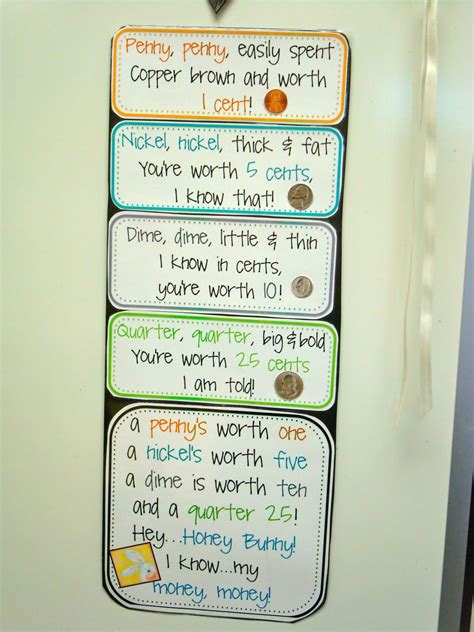 Penny, penny, easily spent
Copper brown and worth
1 cent!
Nickel, nickel, thick & fat
You're worth 5 cents,
I know that!
Dime, dime, little & thin
I know in cents,
you're worth 10!
Quarter, quarter, big & bold
You're worth 25 cents
I am told!
a penny's worth one
a nickel's worth five
a dime is worth ten
and a quarter 25!
Hey...Honey Bunny!
I know...my
money, money!